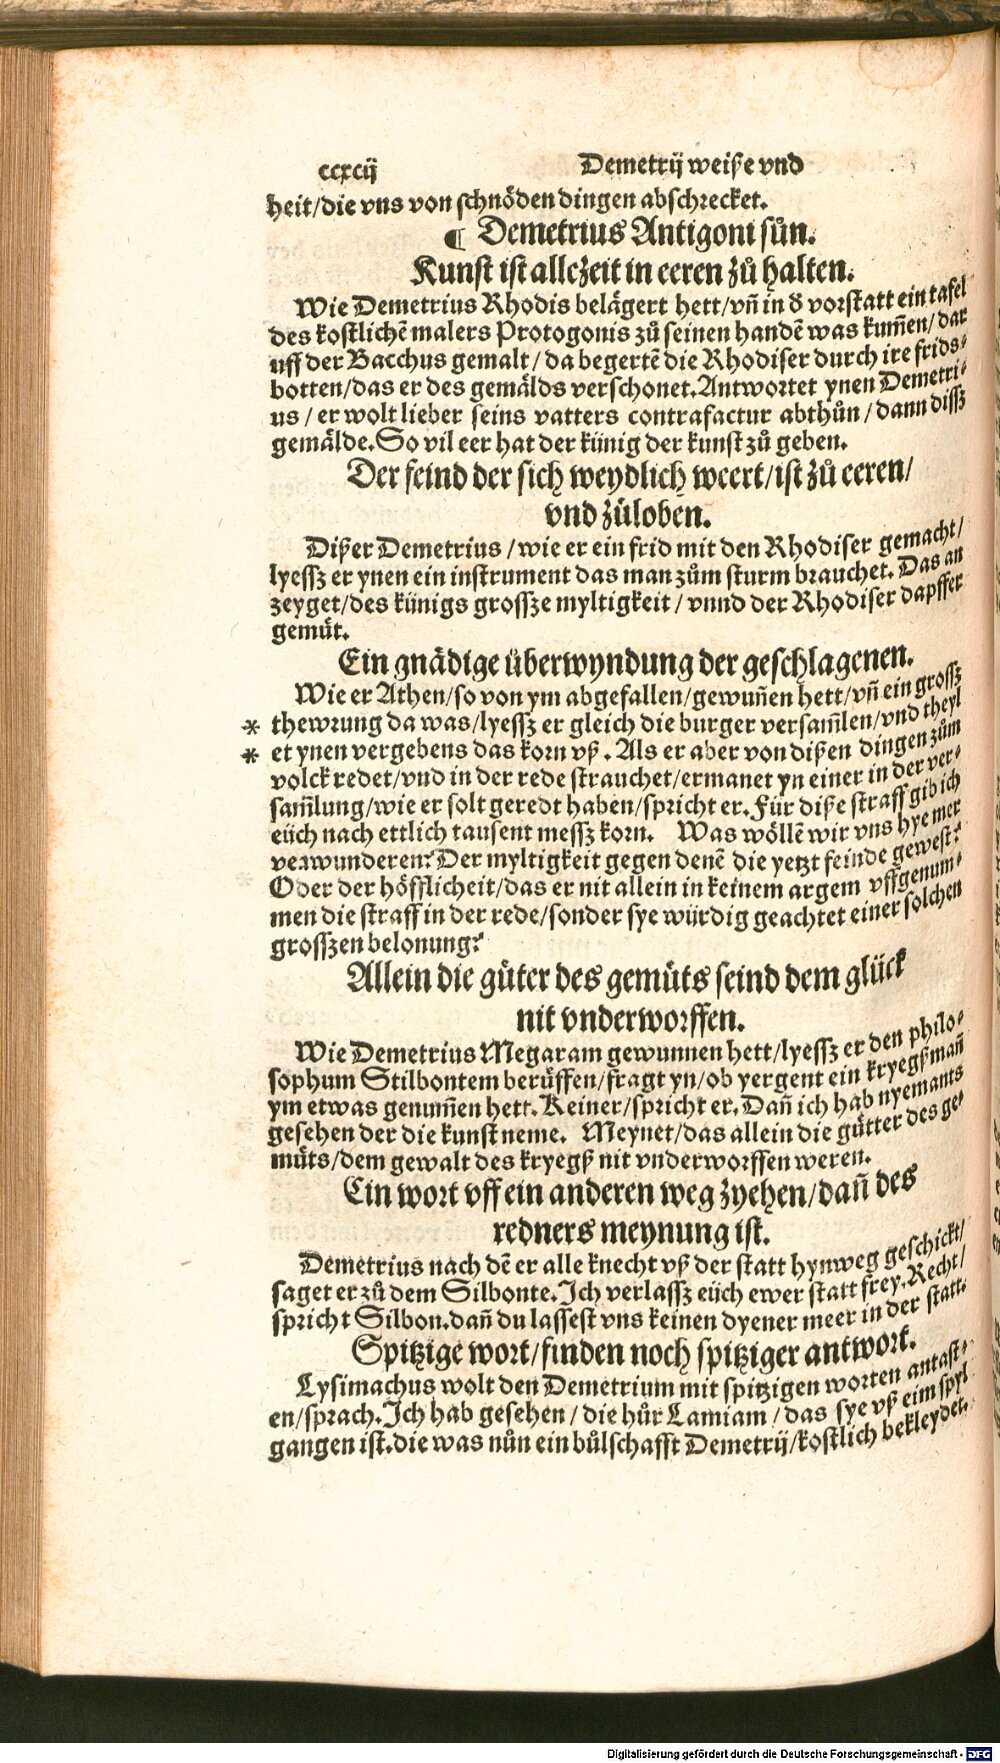 ccxcij Demetrij weiße vnd
heit/die vns von schnöden dingen abschrecket.
¶ Demetrius Antigoni sůn.
Kunst ist allezeit in eeren zů halten.
Wie Demetrius Rhodis belägert hett/vñ in d̕ vorstatt ein tafel
des kostlichē malers Protogonis zů seinen handē was kum̃en/dar
uff der Bacchus gemalt/da begertē die Rhodiser durch ire frids⸗
botten/das er des gemälds verschonet.Antwortet ynen Demetri⸗
us/er wolt lieber seins vatters contrafactur abthůn/dann dissz
gemälde.So vil eer hat der künig der kunst zů geben.
Der feind der sich weydlich weert/ist zů eeren/
vnd zůloben.
Dißer Demetrius/wie er ein frid mit den Rhodiser gemacht/
lyessz er ynen ein instrument das man zům sturm brauchet. Das an
zeyget/des künigs grossze myltigkeit/vnnd der Rhodiser dapffer
gemüt.
Ein gnädige überwyndung der geschlagenen.
Wie er Athen/so von ym abgefallen/gewuñen hett/vñ ein grossz
* thewrung da was/lyessz er gleich die burger versam̃len/vnd theyl
* et ynen vergebens das korn vß. Als er aber von dißen dingen zům
volck redet/vnd in der rede strauchet/ermanet yn einer in der ver⸗
sam̃lung/wie er solt geredt haben/spricht er.Für diße straff gib ich
eüch nach ettlich tausent messz korn. Was wöllē wir vns hye mer
verwunderen?Der myltigkeit gegen denē die yetzt feinde gewest?
Oder der höfflicheit/das er nit allein in keinem argem vffgenum⸗
men die straff in der rede/sonder sye würdig geachtet einer solchen
grosszen belonung?
Allein die güter des gemüts seind dem glück
nit vnderworffen.
Wie Demetrius Megaram gewunnen hett/lyessz er den philo⸗
sophum Stilbontem berüffen/fragt yn/ob yergent ein kryegßmañ
ym etwas genum̃en hett. Keiner/spricht er. Dañ ich hab nyemants
gesehen der die kunst neme. Meynet/das allein die gütter des ge⸗
müts/dem gewalt des kryegß nit vnderworffen weren.
Ein wort vff ein anderen weg zyehen/dañ des
redners meynung ist.
Demetrius nach dē er alle knecht vß der statt hynweg geschickt/
saget er zů dem Silbonte.Ich verlassz eüch ewer statt frey.Recht/
spricht Silbon.dañ du lassest vns keinen dyener meer in der statt.
Spitzige wort/finden noch spitziger antwort.
Lysimachus wolt den Demetrium mit spitzigen worten antast⸗
en/sprach.Ich hab gesehen/die hůr Lamiam/das sye vß eim spyl
gangen ist.die was nůn ein bůlschafft Demetrij/kostlich bekleydet.
Digitalisierung gefördert durch die Deutsche Forschungsgemeinschaft - DFG